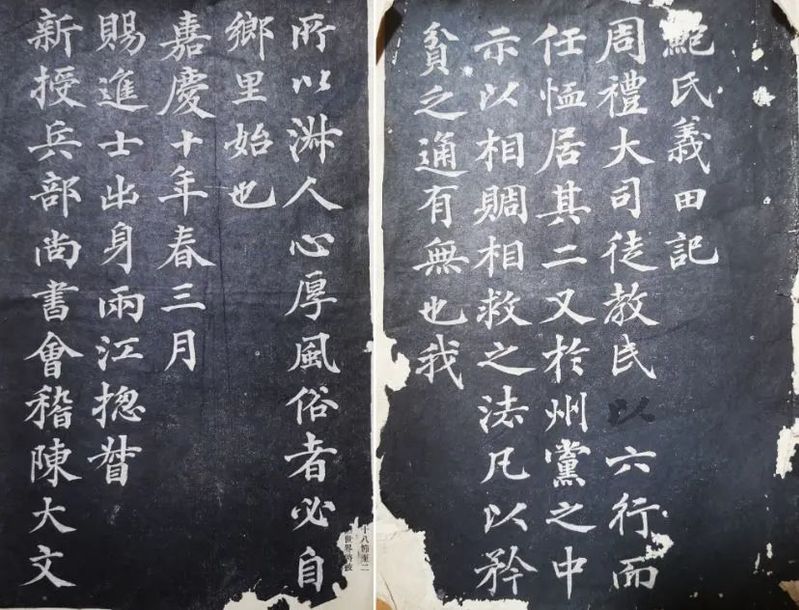 鮑氏義田記
周禮大司徒教民以六行而
任恤居其二又於州黨之中
示以相賙相救之法凡以矜
貧乏通有無也我
所以淋人心厚風俗者必自
鄉里始也
嘉慶十年春三月
賜進士出身兩江揔督
新授兵部尚書會稽陳大文